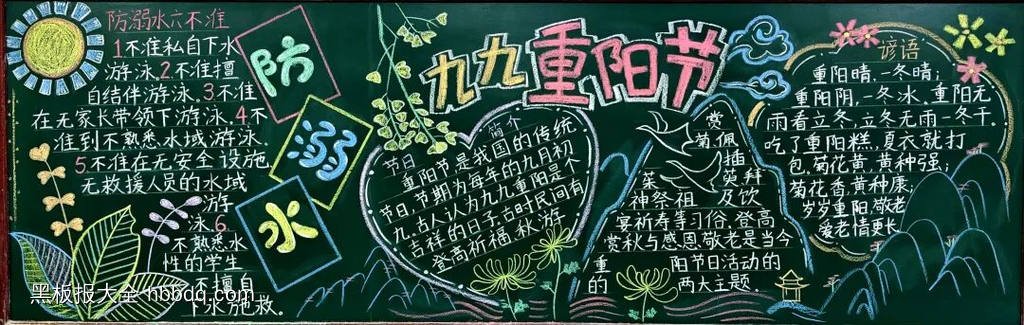 防溺水六不准
1不准私自下水
游泳.2不准擅
自结伴游泳.3不准
在无家长带领下游泳.4不
准到不熟悉水域游泳.
5不准在无安全设施,
无救援人员的水域
游
泳.6
不熟悉水
性的学生
不擅自
下水施救.
防
溺
水
九九重阳节
简介
节日
重阳节是我国的传统
节日.节期为每年的九月初
九.古人认为九九重阳是个
吉祥的日子.古时民间有
登高祈福.秋游
赏
菊.佩
插
茱萸.拜
神祭祖及饮
宴祈寿等习俗.登高
赏秋与感恩敬老是当今
重阳节日活动的
的两大主题.
谚语
重阳晴,一冬晴;
重阳阴,一冬冰.重阳无
雨看立冬,立冬无雨一冬干.
吃了重阳糕,夏衣就打
包.菊花黄,黄种强;
菊花香,黄种康;
岁岁重阳,敬老
爱老情更长
黑板报大全 hbbdq.com